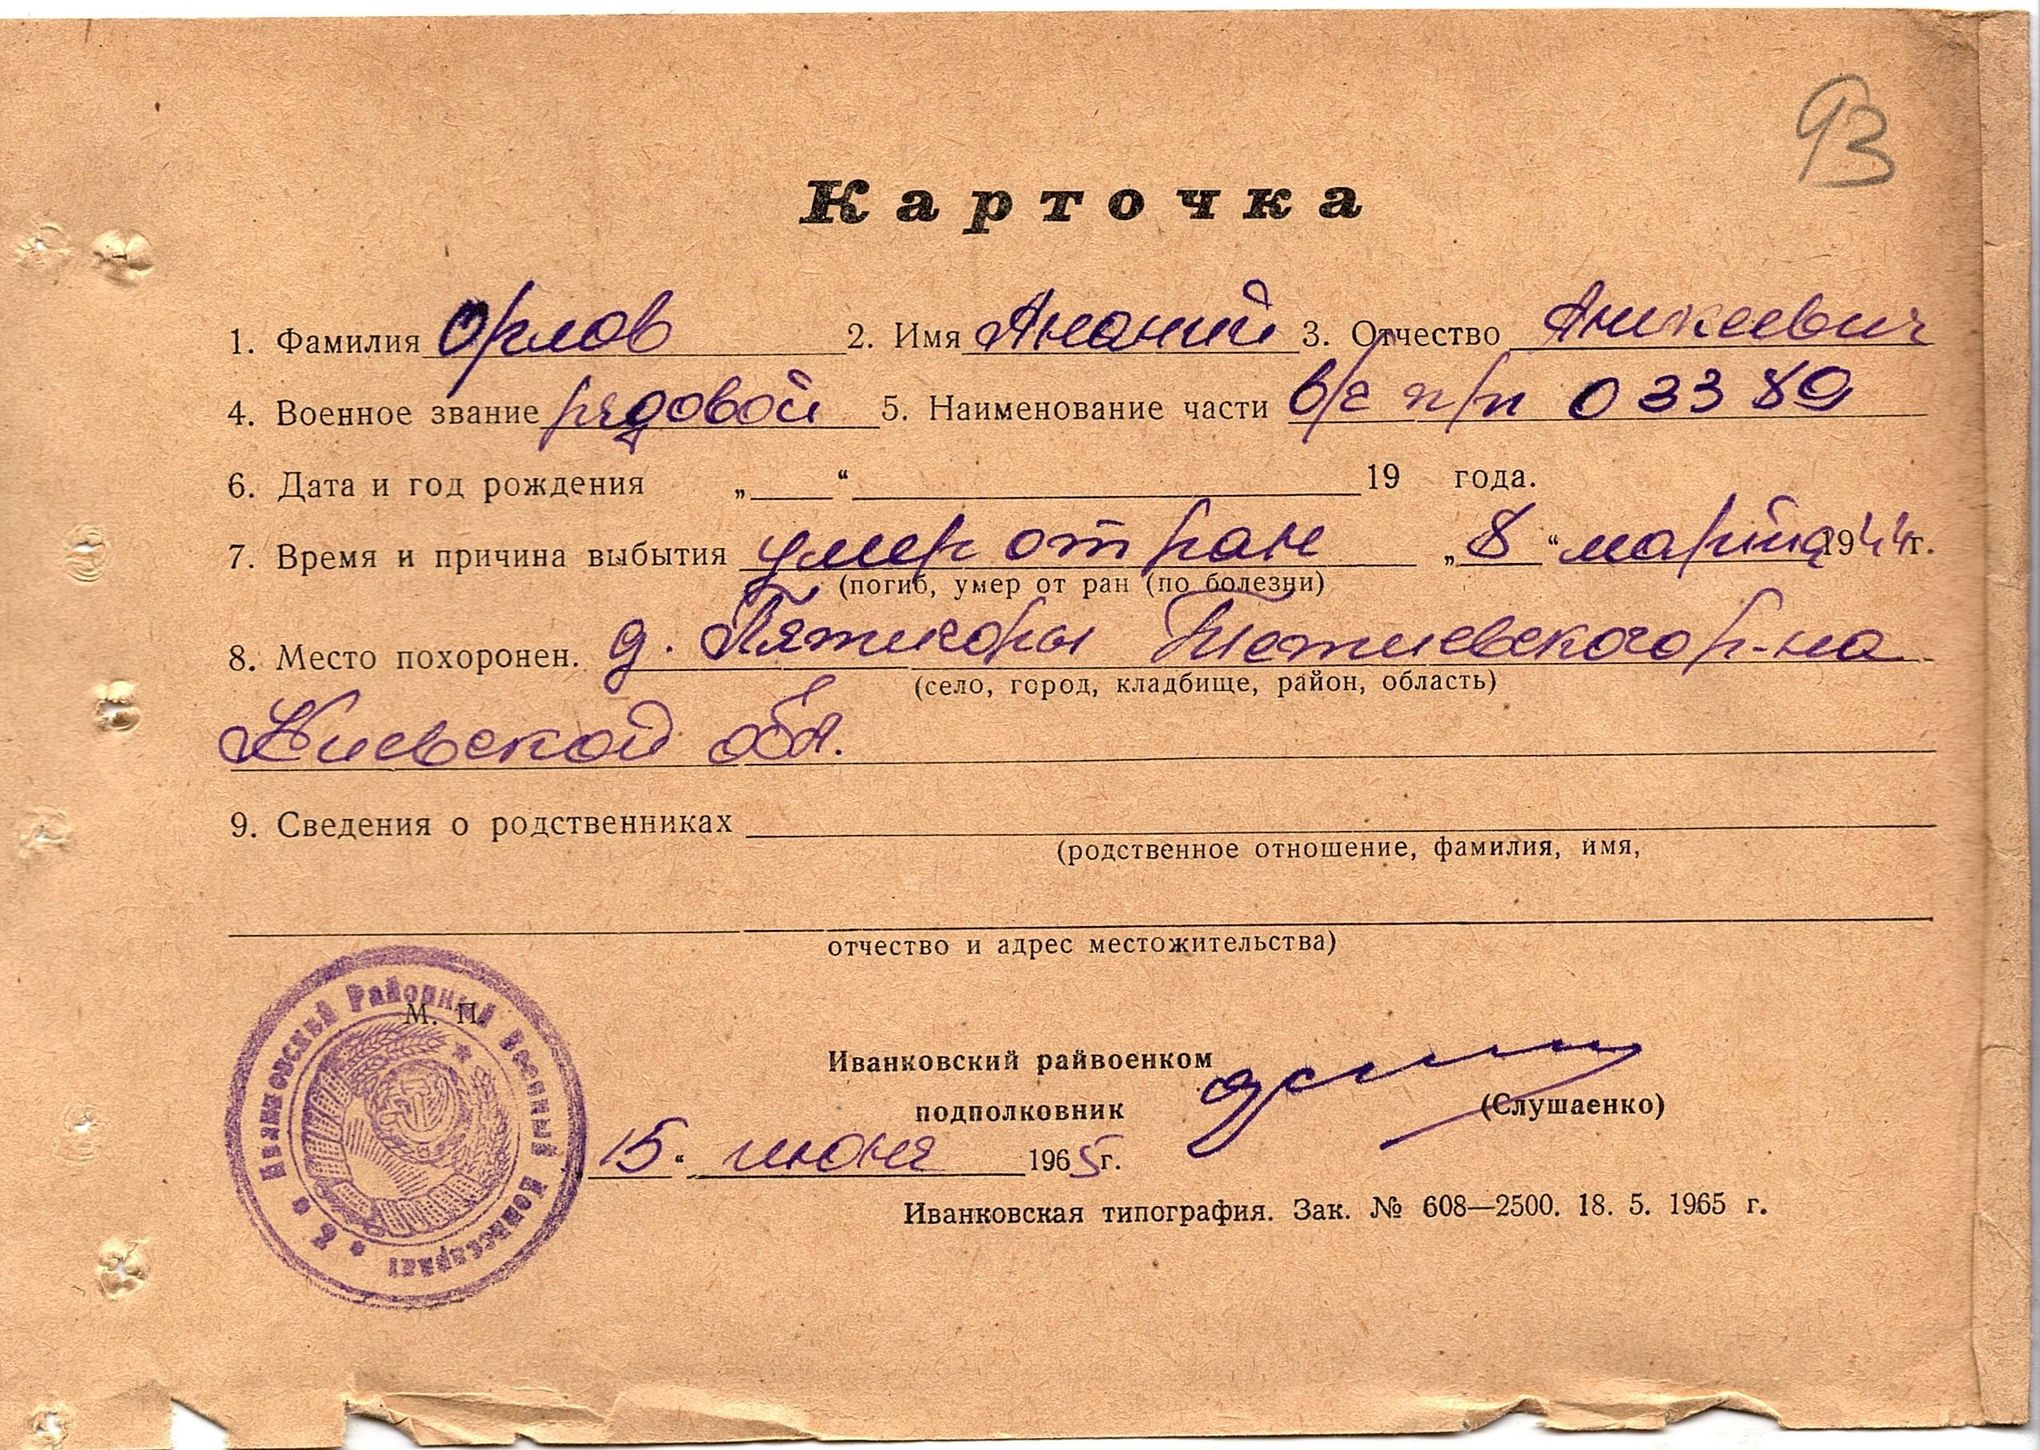 93
Карточка
1. Фамилия Орлов 2. Имя Ананий 3. Отчество Аникеевич
4. Военное звание рядовой 5. Наименование части в/ч п/п 03389
6. Дата и год рождения „ “ 19 года.
7. Время и причина выбытия умер от ран „8“ марта 1944г.
(погиб, умер от ран (по болезни)
8. Место похоронен. д. Пятигоры Тетиевского р-на
(село, город, кладбище, район, область)
Киевской обл.
9. Сведения о родственниках
(родственное отношение, фамилия, имя,
отчество и адрес местожительства)
М. П.
Иванковский Районный Военный Комиссариат
Иванковский райвоенком
подполковник (Слушаенко)
„15“ июня 1965г.
Иванковская типография. Зак. № 608—2500. 18. 5. 1965 г.